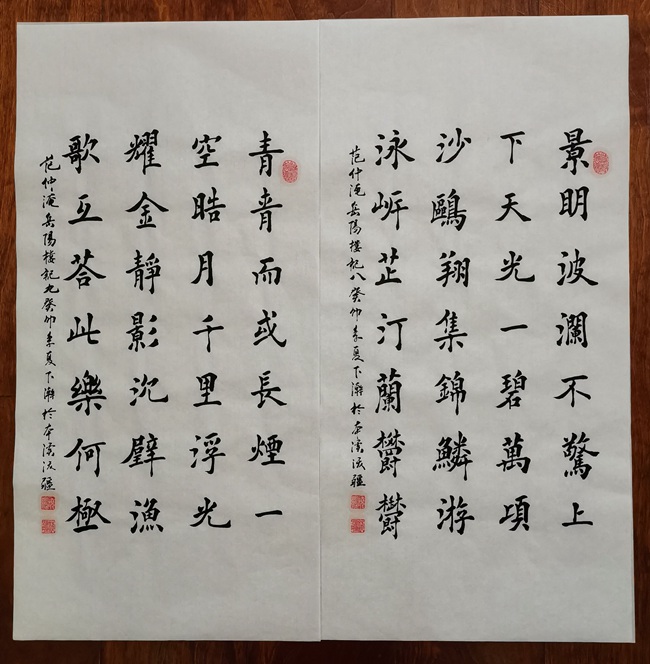 景明波瀾不驚上
下天光一碧萬項
沙鷗翔集錦鱗游
泳岸芷汀蘭鬱鬱
范仲淹岳陽樓記八癸卯季夏下澣於本溪
青青而或長煙一
空晧月千里浮光
耀金靜影沉璧漁
歌互荅此樂何極
范仲淹岳陽樓記九癸卯季夏下澣於本溪